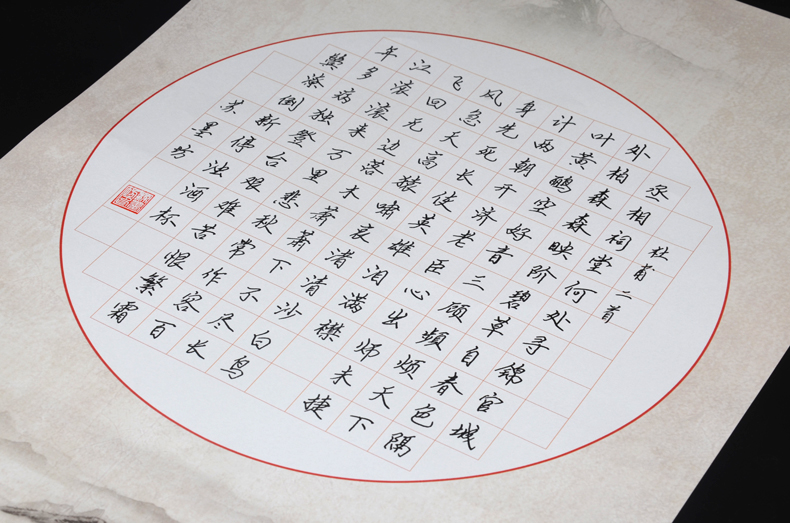 杜甫二首
丞相祠堂何处寻锦官城
外柏森森映阶碧草自春色隔
叶黄鹂空好青三顾频烦天下
计两朝开济老臣心出师未捷
身先死长使英雄泪满襟
风急天高猿啸哀渚清沙白鸟
飞回无边落木萧萧下不尽长
江滚滚来万里悲秋常作客百
年多病独登台艰难苦恨繁霜
鬓潦倒新停浊酒杯
苏墨坊